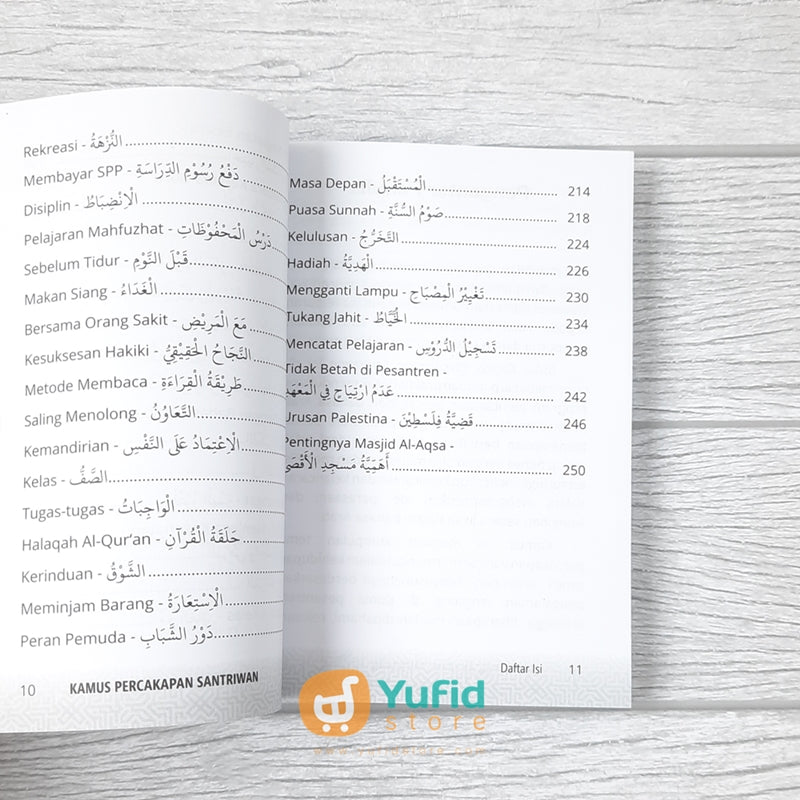 Rekreasi - النُّزْهَةُ
Membayar SPP - دَفْعُ رُسُوْمِ الدِّرَاسَةِ
Disiplin - الْاِنْضِبَاطُ
Pelajaran Mahfuzhat - دَرْسُ الْمَحْفُوْظَاتِ
Sebelum Tidur - قَبْلَ النَّوْمِ
Makan Siang - الْغَدَاءُ
Bersama Orang Sakit - مَعَ الْمَرِيْضِ
Kesuksesan Hakiki - النَّجَاحُ الْحَقِيْقِيُّ
Metode Membaca - طَرِيْقَةُ الْقِرَاءَةِ
Saling Menolong - التَّعَاوُنُ
Kemandirian - الْاِعْتِمَادُ عَلَى النَّفْسِ
Kelas - الصَّفُّ
Tugas-tugas - الْوَاجِبَاتُ
Halaqah Al-Qur'an - حَلَقَةُ الْقُرْآنِ
Kerinduan - الشَّوْقُ
Meminjam Barang - الْاِسْتِعَارَةُ
Peran Pemuda - دَوْرُ الشَّبَابِ
10 KAMUS PERCAKAPAN SANTRIWAN
Masa Depan - الْمُسْتَقْبَلُ 214
Puasa Sunnah - صَوْمُ السُّنَّةِ 218
Kelulusan - التَّخَرُّجُ 224
Hadiah - الْهَدِيَّةُ 226
Mengganti Lampu - تَغْيِيْرُ الْمِصْبَاحِ 230
Tukang Jahit - الْخَيَّاطُ 234
Mencatat Pelajaran - تَسْجِيْلُ الدُّرُوْسِ 238
Tidak Betah di Pesantren -
عَدَمُ ارْتِيَاحٍ فِي الْمَعْهَدِ 242
Urusan Palestina - قَضِيَّةُ فِلَسْطِيْنَ 246
Pentingnya Masjid Al-Aqsa -
أَهَمِّيَّةُ مَسْجِدِ الْأَقْصَى 250
Daftar Isi 11
Yufid
store